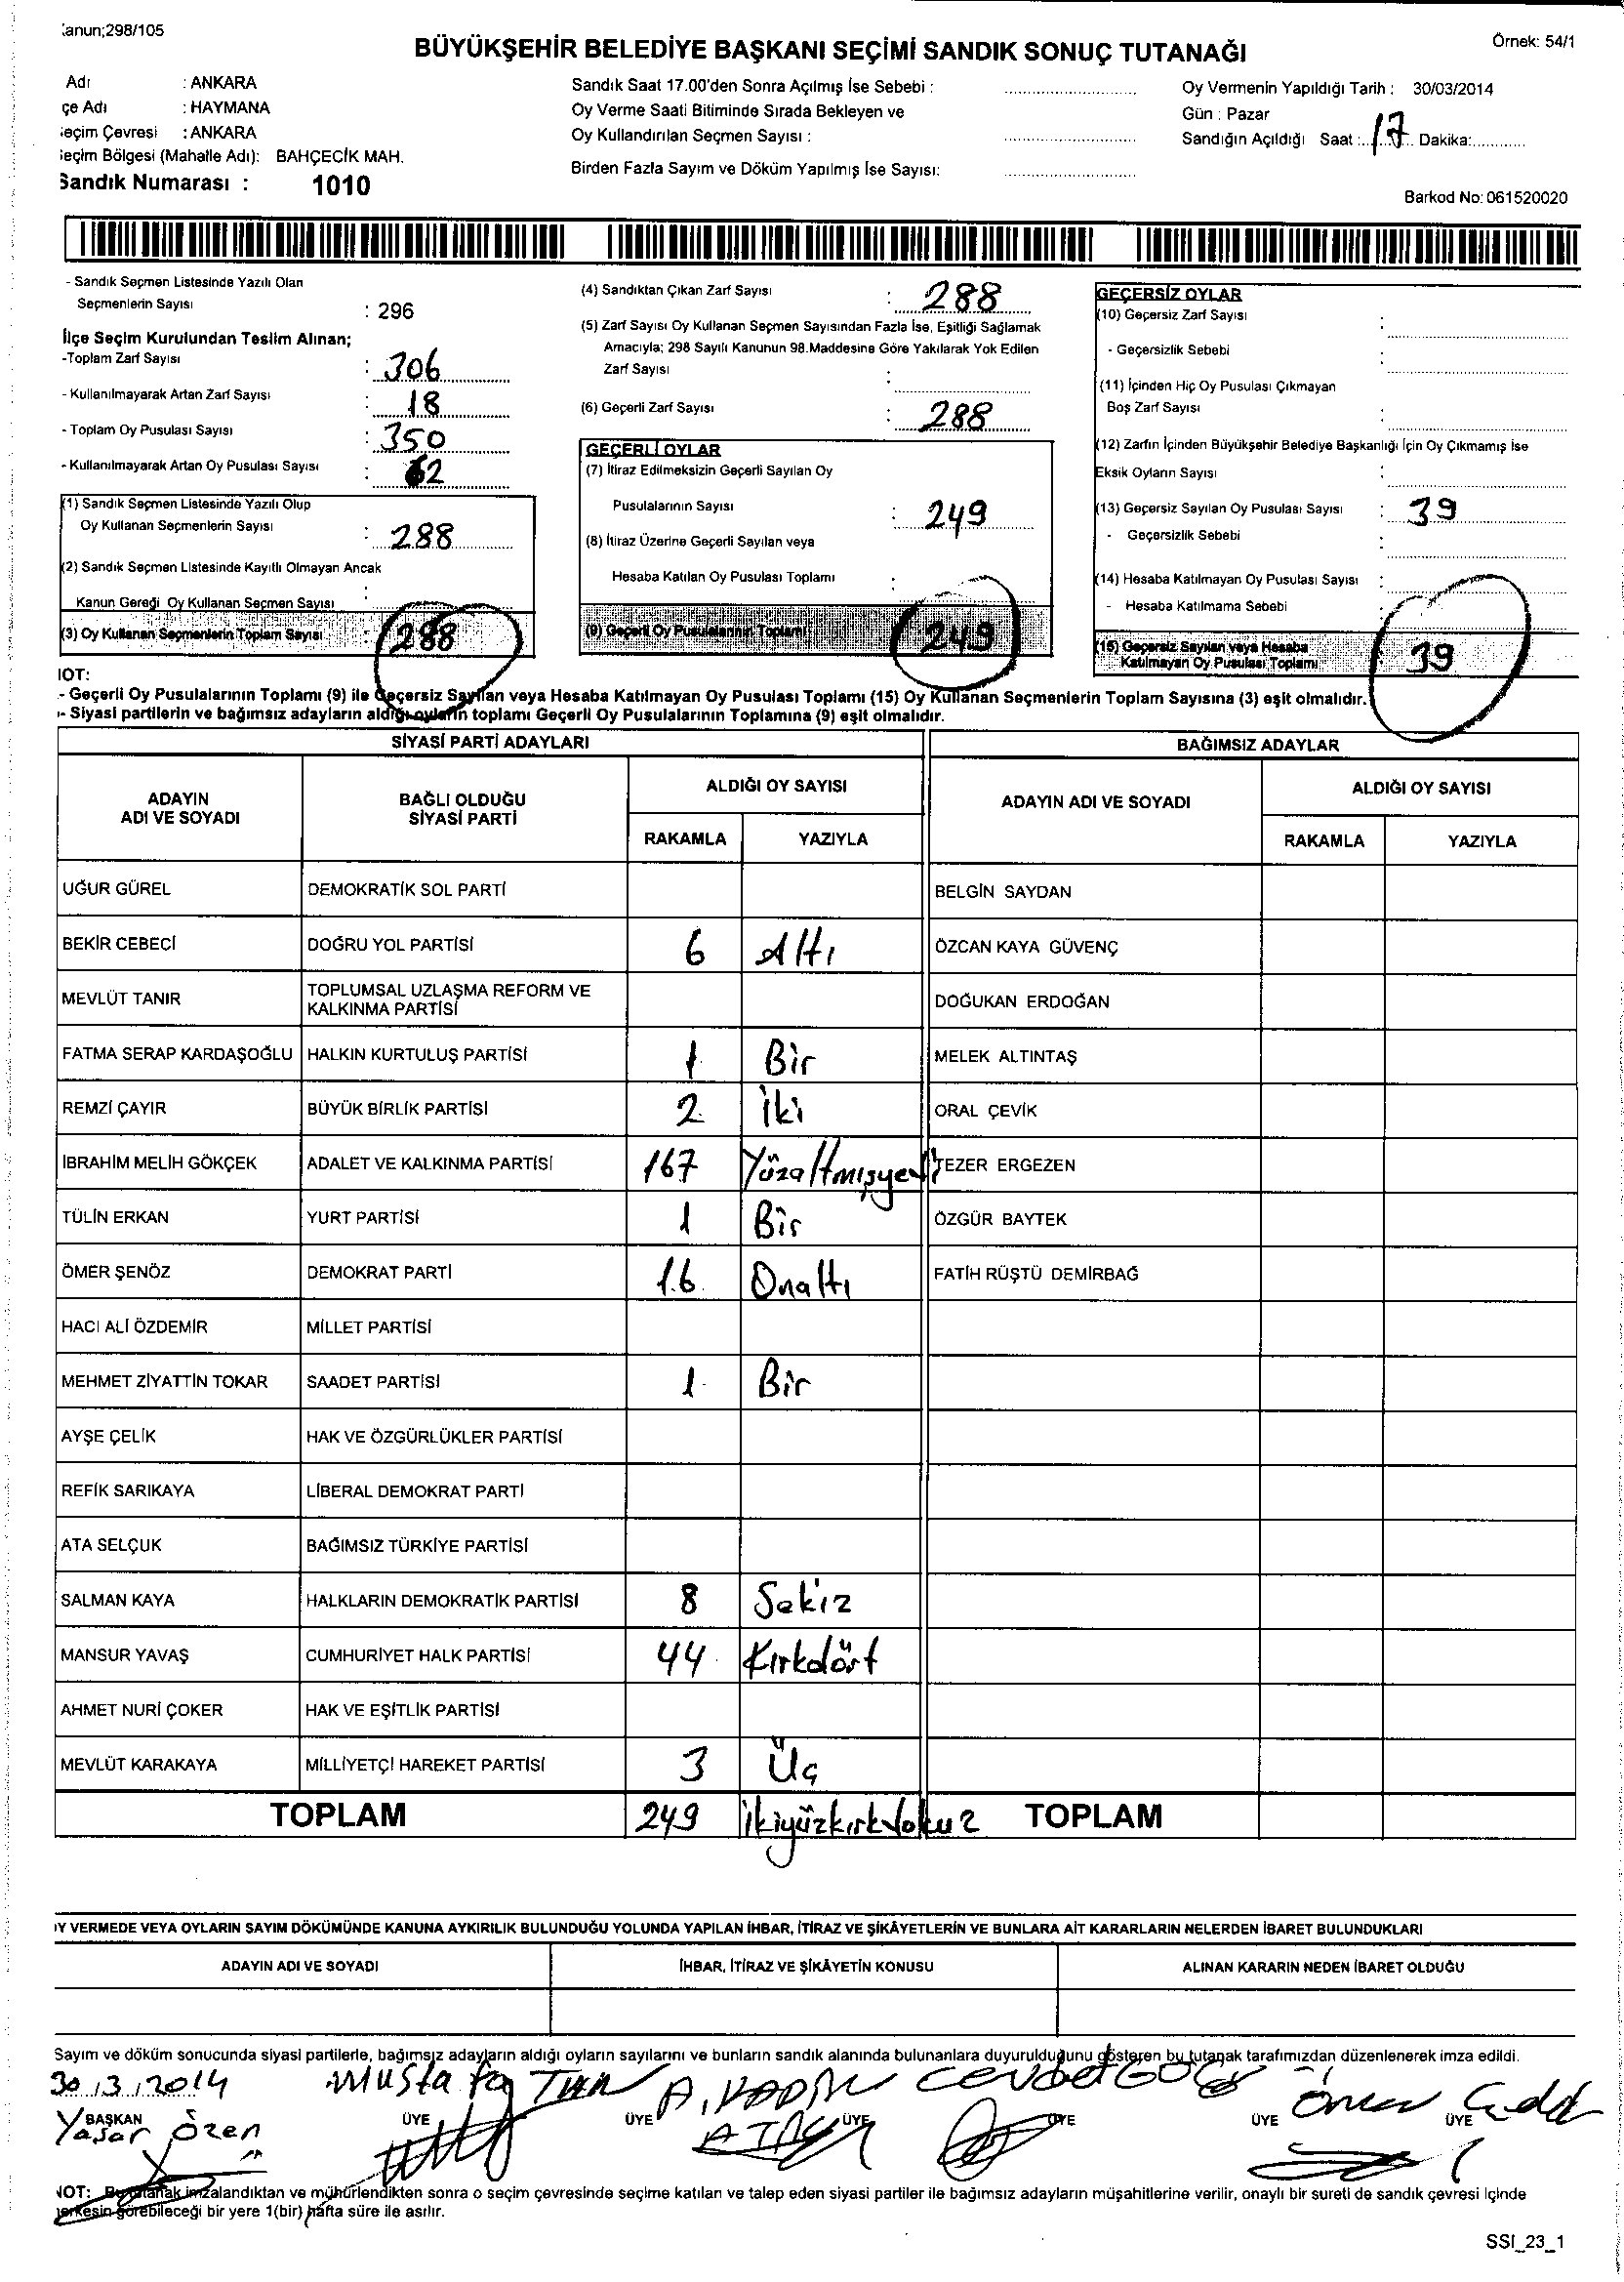 anun;298/105
Örnek: 54/1
BÜYÜKŞEHİR BELEDİYE BAŞKANI SEÇİMİ SANDIK SONUÇ TUTANAĞI
Adı : ANKARA
çe Adı : HAYMANA
eçim Çevresi : ANKARA
eçim Bölgesi (Mahalle Adı): BAHÇECİK MAH.
Sandık Numarası : 1010
Sandık Saat 17.00'den Sonra Açılmış İse Sebebi :
Oy Verme Saati Bitiminde Sırada Bekleyen ve
Oy Kullandırılan Seçmen Sayısı :
Birden Fazla Sayım ve Döküm Yapılmış İse Sayısı:
Oy Vermenin Yapıldığı Tarih : 30/03/2014
Gün : Pazar
Sandığın Açıldığı Saat : 17 Dakika:
Barkod No: 061520020
- Sandık Seçmen Listesinde Yazılı Olan
Seçmenlerin Sayısı : 296
İlçe Seçim Kurulundan Teslim Alınan;
-Toplam Zarf Sayısı : 306
- Kullanılmayarak Artan Zarf Sayısı : 18
- Toplam Oy Pusulası Sayısı : 350
- Kullanılmayarak Artan Oy Pusulası Sayısı : 62
(1) Sandık Seçmen Listesinde Yazılı Olup
Oy Kullanan Seçmenlerin Sayısı : 288
(2) Sandık Seçmen Listesinde Kayıtlı Olmayan Ancak
Kanun Gereği Oy Kullanan Seçmen Sayısı :
(3) Oy Kullanan Seçmenlerin Toplam Sayısı : 288
(4) Sandıktan Çıkan Zarf Sayısı : 288
(5) Zarf Sayısı Oy Kullanan Seçmen Sayısından Fazla İse, Eşitliği Sağlamak
Amacıyla; 298 Sayılı Kanunun 98.Maddesine Göre Yakılarak Yok Edilen
Zarf Sayısı :
(6) Geçerli Zarf Sayısı : 288
GEÇERLİ OYLAR
(7) İtiraz Edilmeksizin Geçerli Sayılan Oy
Pusulalarının Sayısı : 249
(8) İtiraz Üzerine Geçerli Sayılan veya
Hesaba Katılan Oy Pusulası Toplamı :
(9) Geçerli Oy Pusulalarının Toplamı 249
GEÇERSİZ OYLAR
(10) Geçersiz Zarf Sayısı :
- Geçersizlik Sebebi :
(11) İçinden Hiç Oy Pusulası Çıkmayan
Boş Zarf Sayısı :
(12) Zarfın İçinden Büyükşehir Belediye Başkanlığı İçin Oy Çıkmamış İse
Eksik Oyların Sayısı :
(13) Geçersiz Sayılan Oy Pusulası Sayısı : 39
- Geçersizlik Sebebi :
(14) Hesaba Katılmayan Oy Pusulası Sayısı :
- Hesaba Katılmama Sebebi :
(15) Geçersiz Sayılan veya Hesaba
Katılmayan Oy Pusulası Toplamı 39
IOT:
- Geçerli Oy Pusulalarının Toplamı (9) ile Geçersiz Sayılan veya Hesaba Katılmayan Oy Pusulası Toplamı (15) Oy Kullanan Seçmenlerin Toplam Sayısına (3) eşit olmalıdır.
- Siyasi partilerin ve bağımsız adayların aldığı oyların toplamı Geçerli Oy Pusulalarının Toplamına (9) eşit olmalıdır.
SİYASİ PARTİ ADAYLARI BAĞIMSIZ ADAYLAR
ADAYIN ADI VE SOYADI BAĞLI OLDUĞU SİYASİ PARTİ ALDIĞI OY SAYISI ADAYIN ADI VE SOYADI ALDIĞI OY SAYISI
RAKAMLA YAZIYLA RAKAMLA YAZIYLA
UĞUR GÜREL DEMOKRATİK SOL PARTİ BELGİN SAYDAN
BEKİR CEBECİ DOĞRU YOL PARTİSİ 6 Altı ÖZCAN KAYA GÜVENÇ
MEVLÜT TANIR TOPLUMSAL UZLAŞMA REFORM VE KALKINMA PARTİSİ DOĞUKAN ERDOĞAN
FATMA SERAP KARDAŞOĞLU HALKIN KURTULUŞ PARTİSİ 1 Bir MELEK ALTINTAŞ
REMZİ ÇAYIR BÜYÜK BİRLİK PARTİSİ 2 İki ORAL ÇEVİK
İBRAHİM MELİH GÖKÇEK ADALET VE KALKINMA PARTİSİ 167 Yüzaltmışyedi TEZER ERGEZEN
TÜLİN ERKAN YURT PARTİSİ 1 Bir ÖZGÜR BAYTEK
ÖMER ŞENÖZ DEMOKRAT PARTİ 16 Onaltı FATİH RÜŞTÜ DEMİRBAĞ
HACI ALİ ÖZDEMİR MİLLET PARTİSİ
MEHMET ZİYATTİN TOKAR SAADET PARTİSİ 1 Bir
AYŞE ÇELİK HAK VE ÖZGÜRLÜKLER PARTİSİ
REFİK SARIKAYA LİBERAL DEMOKRAT PARTİ
ATA SELÇUK BAĞIMSIZ TÜRKİYE PARTİSİ
SALMAN KAYA HALKLARIN DEMOKRATİK PARTİSİ 8 Sekiz
MANSUR YAVAŞ CUMHURİYET HALK PARTİSİ 44 Kırkdört
AHMET NURİ ÇOKER HAK VE EŞİTLİK PARTİSİ
MEVLÜT KARAKAYA MİLLİYETÇİ HAREKET PARTİSİ 3 Üç
TOPLAM 249 İkiyüzkırkdokuz TOPLAM
Y VERMEDE VEYA OYLARIN SAYIM DÖKÜMÜNDE KANUNA AYKIRILIK BULUNDUĞU YOLUNDA YAPILAN İHBAR, İTİRAZ VE ŞİKÂYETLERİN VE BUNLARA AİT KARARLARIN NELERDEN İBARET BULUNDUKLARI
ADAYIN ADI VE SOYADI İHBAR, İTİRAZ VE ŞİKÂYETİN KONUSU ALINAN KARARIN NEDEN İBARET OLDUĞU
Sayım ve döküm sonucunda siyasi partilerle, bağımsız adayların aldığı oyların sayılarını ve bunların sandık alanında bulunanlara duyurulduğunu gösteren bu tutanak tarafımızdan düzenlenerek imza edildi.
30/3/2014 Mustafa A. KADİR Cevdet Ömer
BAŞKAN ÜYE ÜYE ÜYE ÜYE ÜYE ÜYE
Yaşar Özen
NOT: Bu tutanak imzalandıktan ve mühürlendikten sonra o seçim çevresinde seçime katılan ve talep eden siyasi partiler ile bağımsız adayların müşahitlerine verilir, onaylı bir sureti de sandık çevresi içinde
herkesin görebileceği bir yere 1(bir) hafta süre ile asılır.
SSI_23_1